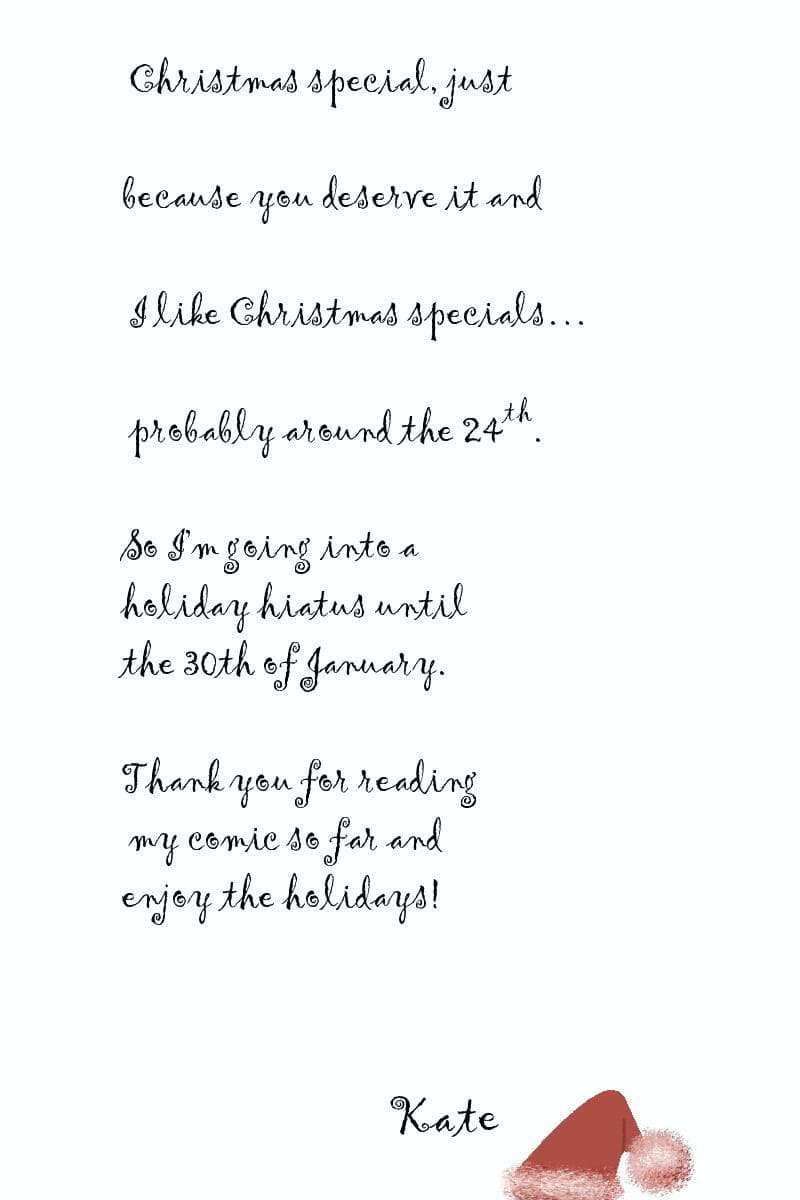 Christmas special, just
because you deserve it and
I like Christmas specials...
probably around the 24th.
So I'm going into a
holiday hiatus until
the 30th of January.
Thank you for reading
my comic so far and
enjoy the holidays!
Kate